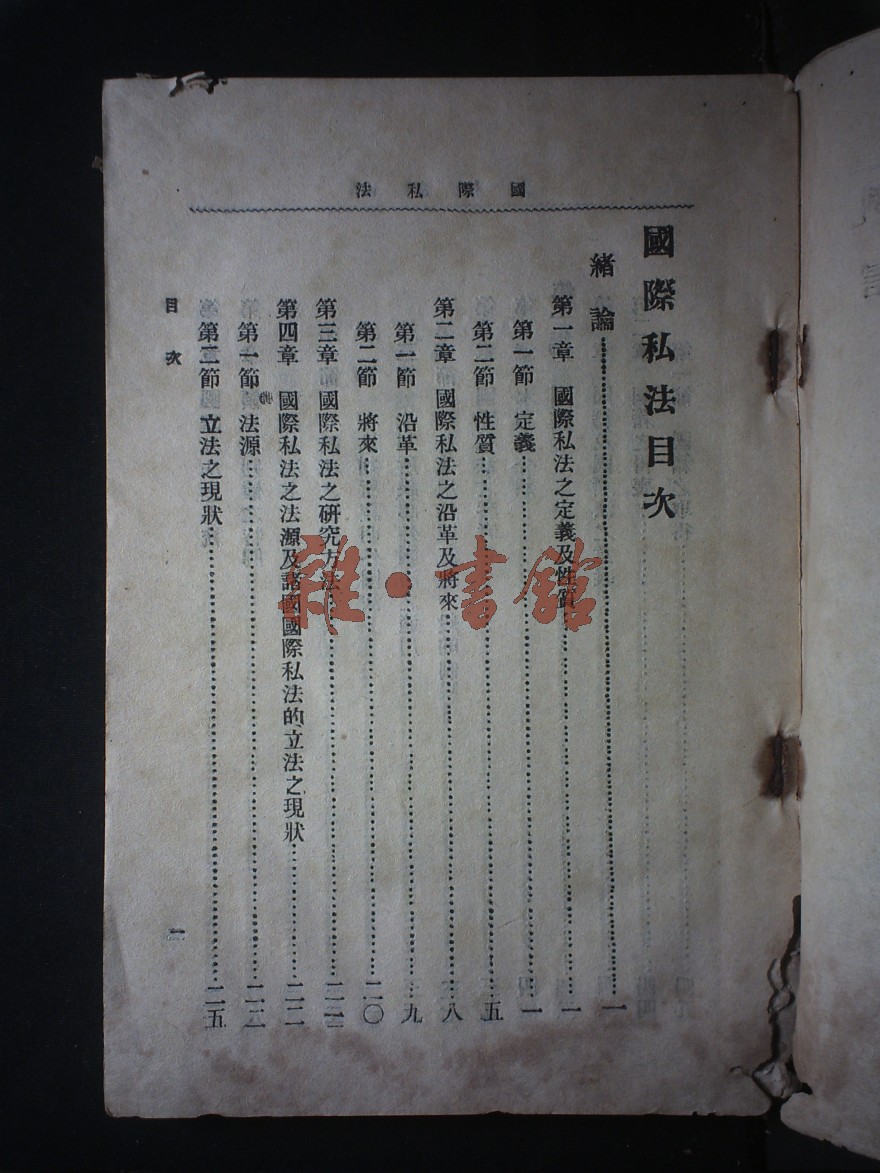 國際私法
國際私法目次
緒論……一
第一章 國際私法之定義及性質……一
第一節 定義……一
第二節 性質……五
第二章 國際私法之沿革及將來……八
第一節 沿革……九
第二節 將來……二〇
第三章 國際私法之研究方法……二一
第四章 國際私法之法源及諸國國際私法的立法之現狀……二二
第一節 法源……二二
第二節 立法之現狀……二五
目次
一
雜·書館